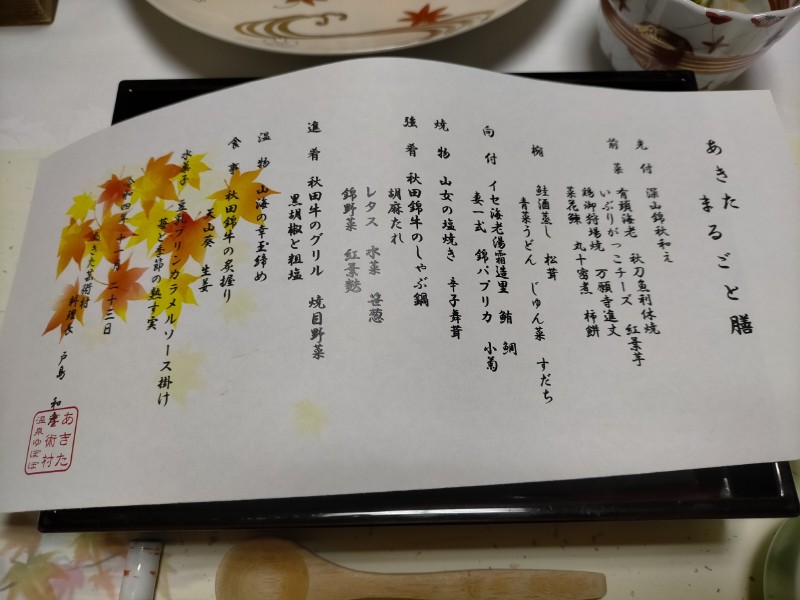 あきた
まるごと膳
先付 深山錦秋和え
前菜 有頭海老 秋刀魚利休焼
いぶりがっこチーズ 紅葉芋
鶏御狩場焼 万願寺進丈
菜花錬 丸十蜜煮 柿餅
椀 鮭酒蒸し 松茸
青菜うどん じゅん菜 すだち
向付 イセ海老湯霜造里 鮪 鯛
妻一式 錦パプリカ 小菊
焼物 山女の塩焼き 辛子舞茸
強肴 秋田錦牛のしゃぶ鍋
胡麻たれ
レタス 水菜 笹葱
錦野菜 紅葉麩
進肴 秋田牛のグリル 焼目野菜
黒胡椒と粗塩
温物 山海の幸玉締め
食事 秋田錦牛の炙握り
天山葵 生姜
水菓子 豆乳プリンカラメルソース掛け
苺と季節の熟す実
令和四年 十一月 二十三日
あきた芸術村
料理長 戸島 和彦
あきた
芸術村
温泉ゆぽぽ